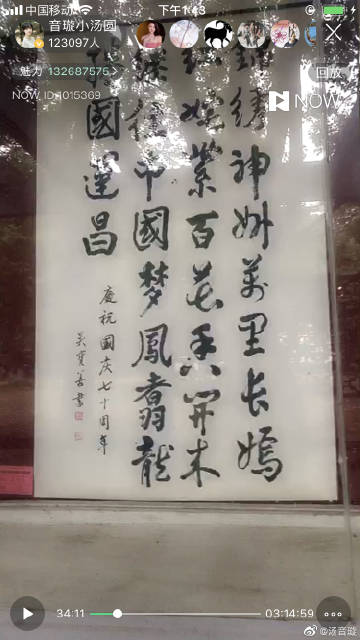 中国移动 下午1:43
音璇小汤圆
123097人
魅力 132687575 >
回放
NOW ID:1015369
NOW
繡神州萬里长嫣
紫百花香開木
中國梦鳳翥龍
國運昌
慶祝國庆七十周年
善書
34:11
03:14:59
@汤音璇